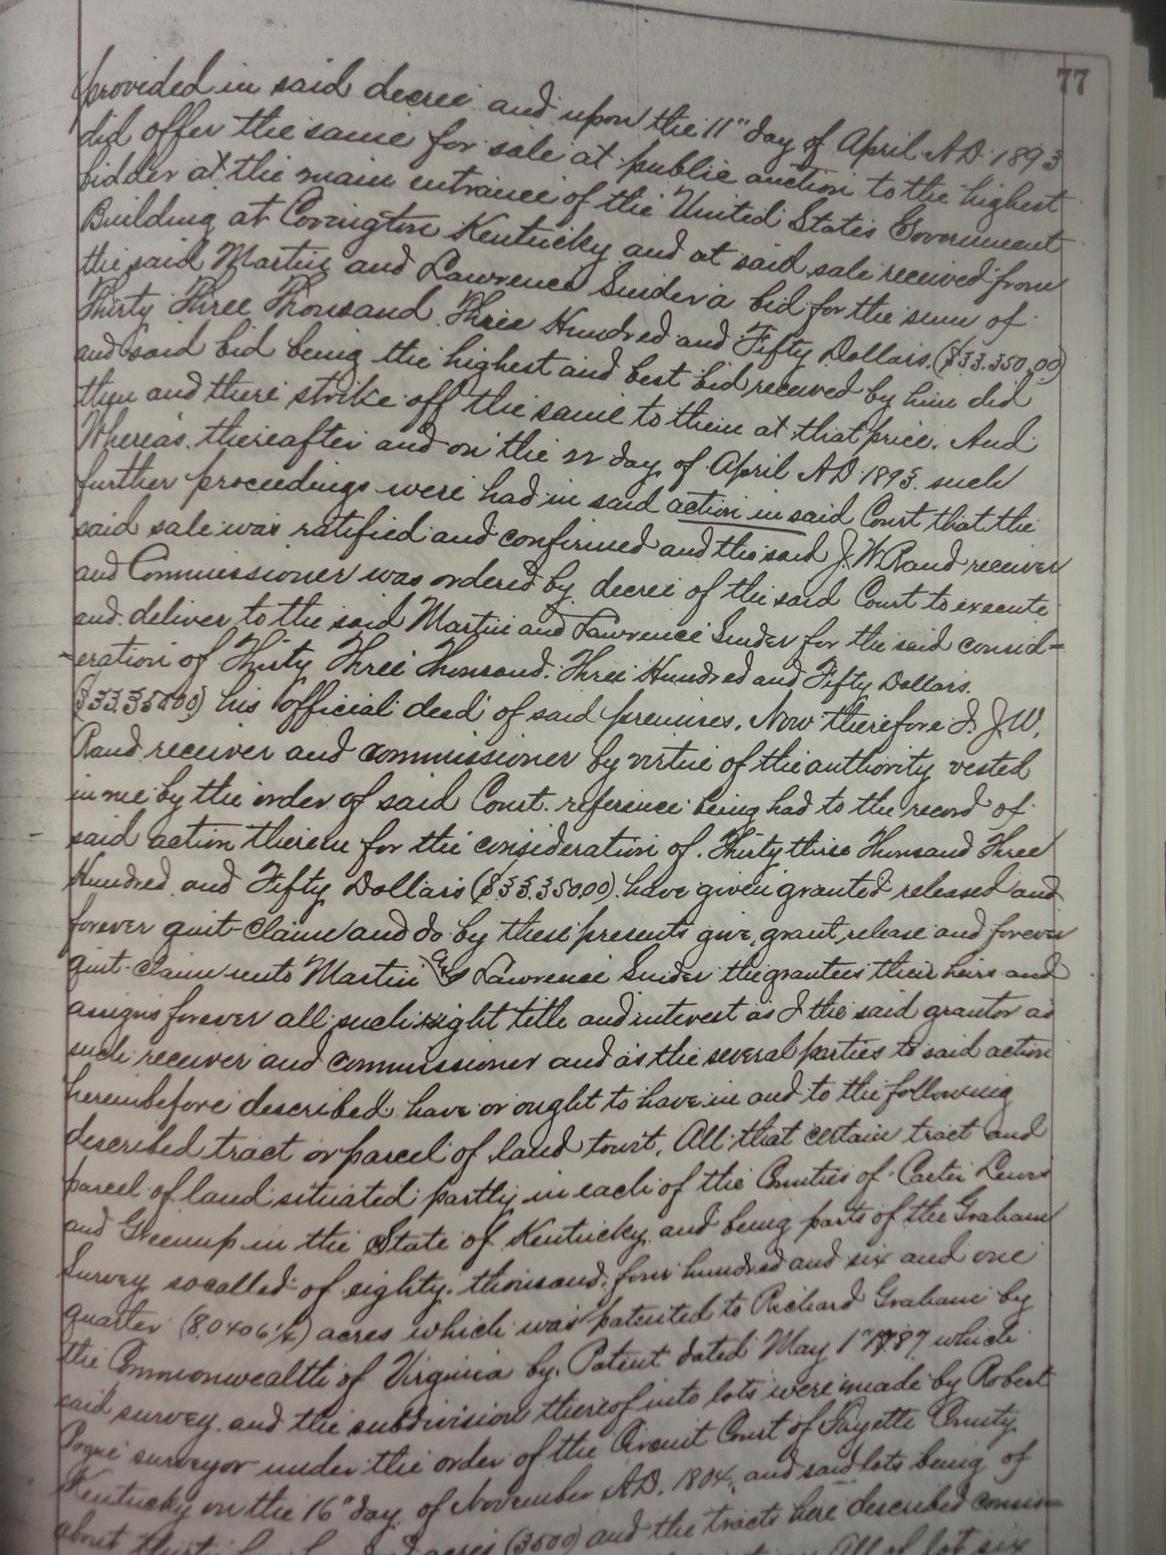 77
provided in said decree and upon the 11" day of April A.D. 1893
did offer the same for sale at public auction to the highest
bidder at the main entrance of the United States Government
Building at Covington Kentucky and at said sale received from
the said Martin and Lawrence Snider a bid for the sum of
Thirty Three Thousand Three Hundred and Fifty Dollars ($33.350.00)
and said bid being the highest and best bid received by him did
then and there strike off the same to them at that price. And
Whereas thereafter and on the day of April A.D. 1893. such
further proceedings were had in said action in said Court that the
said sale was ratified and confirmed and the said J.W. Rand receiver
and Commissioner was ordered by decree of the said Court to execute
and deliver to the said Martin and Lawrence Snider for the said consid=
eration of Thirty Three Thousand Three Hundred and Fifty Dollars.
($33.350.00) his official deed of said premises. Now therefore I. J.W.
Rand receiver and commissioner by virtue of the authority vested
in me by the order of said Court reference being had to the record of
said action therein for the consideration of Thirty three Thousand Three
Hundred and Fifty Dollars ($33.350.00) have given granted released and
forever quit-claim and do by these presents give, grant, release and forever
quit-claim unto Martin & Lawrence Snider the grantees their heirs and
assigns forever all such right title and interest as I the said grantor as
such receiver and commissioner and as the several parties to said action
hereinbefore described have or ought to have in and to the following
described tract or parcel of land towit. All that certain tract and
parcel of land situated partly in each of the Counties of Carter Lewis
and Greenup in the State of Kentucky and being parts of the Graham
Survey so called of eighty thousand four hundred and six and one
quarter (80406¼) acres which was patented to Richard Graham by
the Commonwealth of Virginia by Patent dated May 1" 1787 which
said survey and the subdivision thereof into lots were made by Robert
Pogue surveyor under the order of the Circuit Court of Fayette County
Kentucky on the 16" day of November A.D. 1804, and said lots being of
about acres (3500) and the tracts here described
All of lot six